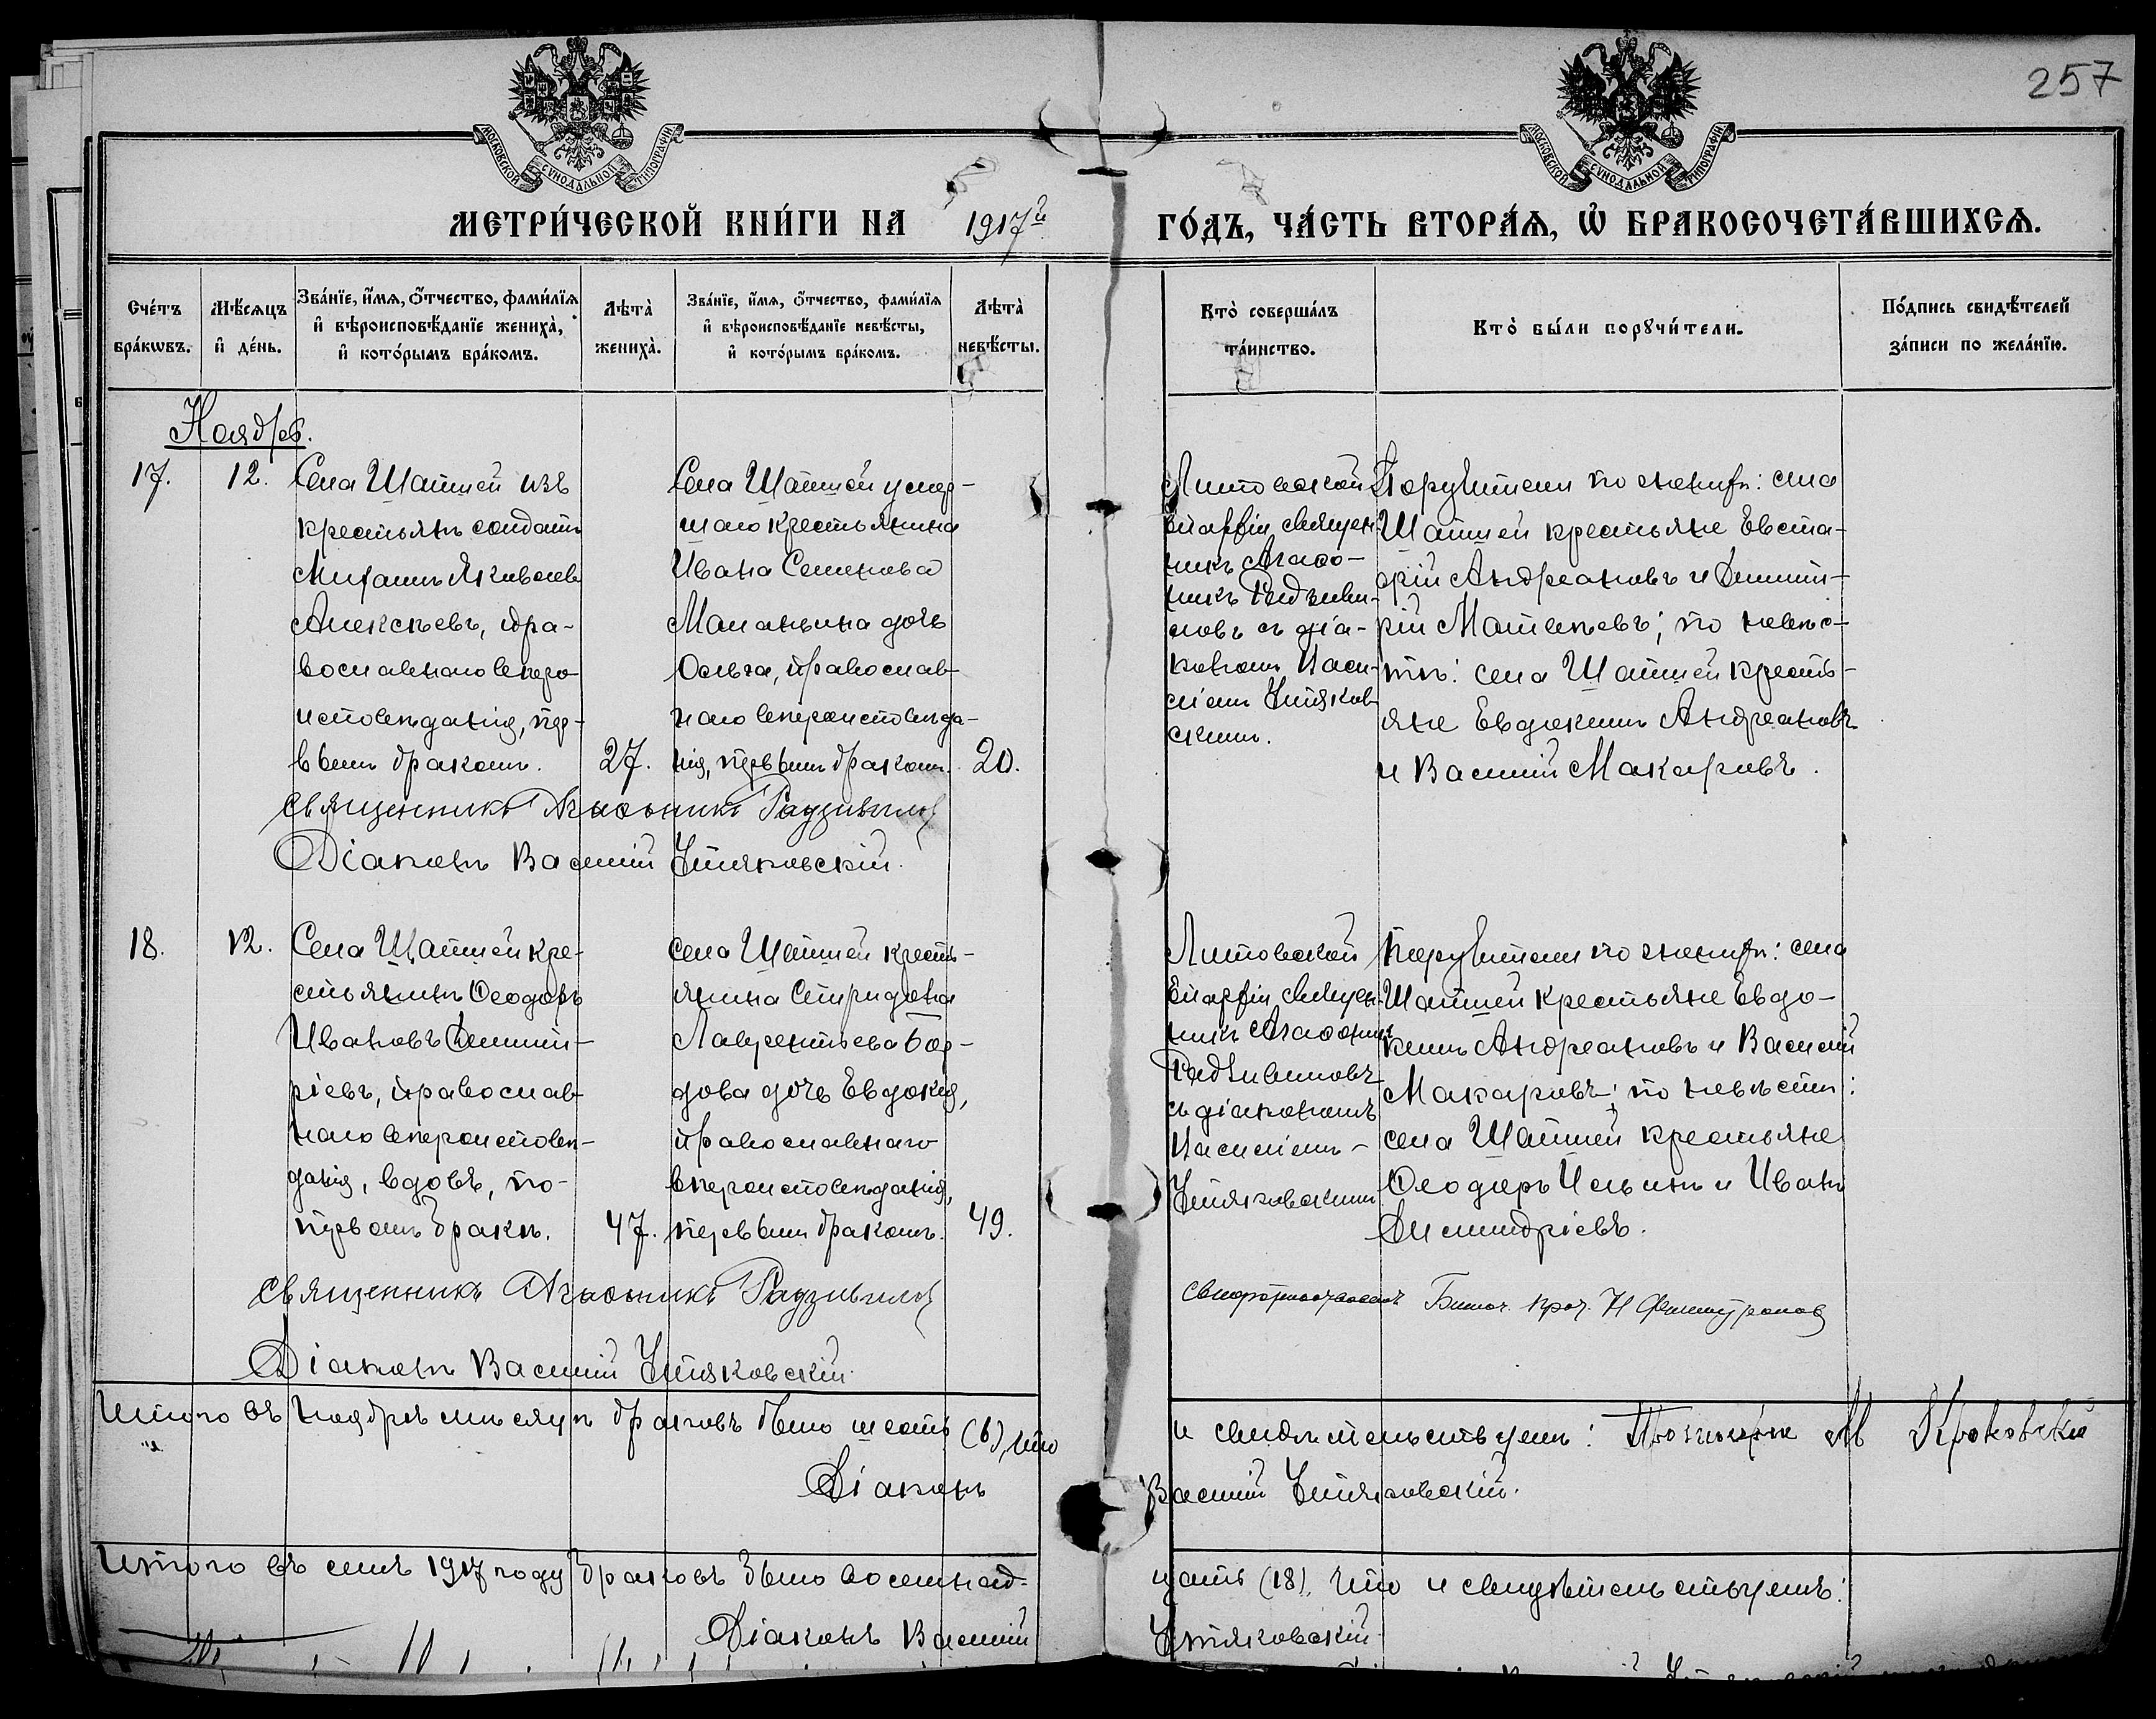 257
МОСКОВСКОЙ СѴНОДАЛЬНОЙ ТИПОГРАФІИ
МОСКОВСКОЙ СѴНОДАЛЬНОЙ ТИПОГРАФІИ
МЕТРИ́ЧЕСКОЙ КНИ́ГИ НА 1917й ГО́ДЪ, ЧА́СТЬ ВТОРА́Ѧ, Ѡ҆ БРАКОСОЧЕТА́ВШИХСѦ.
Сче́тъ бра́кѡвъ.
Мѣ́сѧцъ и҆ де́нь.
Зва́нїе, и҆́мѧ, ѻ҆́тчество, фами́лїѧ
и҆ вѣроисповѣ́данїе жениха̀,
и҆ кото́рымъ бра́комъ.
Лѣта̀ жениха̀.
Зва́нїе, и҆́мѧ, ѻ҆́тчество, фами́лїѧ
и҆ вѣроисповѣ́данїе невѣ́сты,
и҆ кото́рымъ бра́комъ.
Лѣта̀ невѣ́сты.
Кто̀ соверша́лъ та́инство.
Кто̀ бы́ли порꙋчи́тели.
По́дпись свидѣ́телей за́писи по жела́нїю.
Ноябрь.
17.
12.
Села Шатшей изъ
крестьянъ солдатъ
Михаилъ Яковлевъ
Алексѣевъ, пра-
вославнаго вѣро-
исповѣданія, пер-
вымъ бракомъ.
27.
Села Шатшей умер-
шаго крестьянина
Ивана Семенова
Маланьина дочь
Ольга, православ-
наго вѣроисповѣда-
нія, первымъ бракомъ.
20.
Литовской
епархіи священ-
никъ Агаѳо-
никъ Радзиви-
ловъ съ діа-
кономъ Васи-
ліемъ
Поручители по женихѣ: села
Шатшей крестьяне Евста-
фій Андреановъ и Димит-
рій Матвѣевъ; по невѣс-
тѣ: села Шатшей кресть-
яне Евдокимъ Андреановъ
и Василій Макаровъ.
Священникъ Агаѳоникъ Радзивиловъ
Діаконъ Василій
18.
12.
Села Шатшей кре-
стьянинъ Ѳеодоръ
Ивановъ Димит-
ріевъ, православ-
наго вѣроисповѣ-
данія, вдовъ, по-
первомъ бракѣ.
47.
Села Шатшей кресть-
янина Спиридона
Лаврентьева
дочь Евдокія,
православнаго
вѣроисповѣданія,
первымъ бракомъ.
49.
Литовской
Епархіи священ-
никъ Агаѳоникъ
Радзивиловъ
съ діакономъ
Василіемъ
Поручители по женихѣ: села
Шатшей крестьяне Евдо-
кимъ Андреановъ и Василій
Макаровъ; по невѣстѣ:
села Шатшей крестьяне
Ѳеодоръ Ильинъ и Иванъ
Димитріевъ.
Священникъ Агаѳоникъ Радзивиловъ
Діаконъ Василій
Итого въ ноябрѣ мѣсяцѣ браковъ было шесть (6), что
и свидѣтельствуемъ:
Діаконъ Василій
Итого въ семъ 1917 году браковъ было восемнад-
цать (18). Что и свидѣтельствуемъ:
Діаконъ Василій